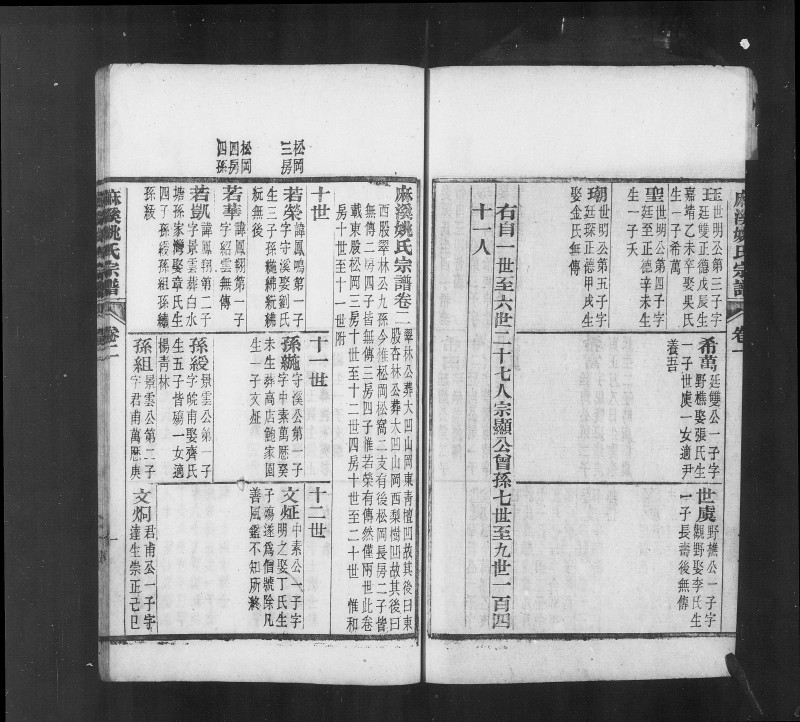 麻溪姚氏宗譜
卷一
珏 世明公第三子字
廷雙正德戊辰生
嘉靖乙未卒娶吳氏
生一子希萬
聖 世明公第四子字
廷至正德辛未生
生一子夭
珝 世明公第五子字
廷琛正德甲戌生
娶金氏無傳
希萬 廷雙公一子字
野樵娶張氏生
一子世虞一女適尹
養吾
世虞 野樵公一子字
觀野娶李氏生
一子長壽後無傳
右自一世至六世二十七人宗顯公曾孫七世至九世一百四
十一人
麻溪姚氏宗譜卷二
翠林公葬大凹山岡東靑檀凹故其後曰東
股杏林公葬大凹山岡西梨樹凹故其後曰
西股翠林公九孫今惟松岡松窩二支有後松岡長房二子皆
無傳二房四子皆無傳三房四子惟若榮有傳然僅兩世此卷
載東股松岡三房十世至十二世四房十世至二十世 惟和
房十世至十一世附
松岡
三房
十世
若榮 諱鳳鳴第一子
字守溪娶劉氏
生三子孫 𥿄
紜無後
松岡
四房
四孫
若華 諱鳳翱第一子
字紹雲無傳
若凱 諱鳳翱第二子
字景雲葬白水
塘孫家灣娶章氏生
四子孫綬孫組孫繡
孫綬
十一世
孫 守溪公第一子
字中素萬曆癸
未生葬高店鮑家園
生一子文炡
孫綬 景雲公第一子
字皖甫娶齊氏
生五子皆殤一女適
楊靑林
孫組 景雲公第二子
字君甫萬曆庚
十二世
文炡 中素公一子字
明之娶丁氏生
子殤遂爲僧號除凡
善風鑑不知所終
文炯 君甫公一子字
達生崇正己巳
麻溪姚氏宗譜
卷二
一